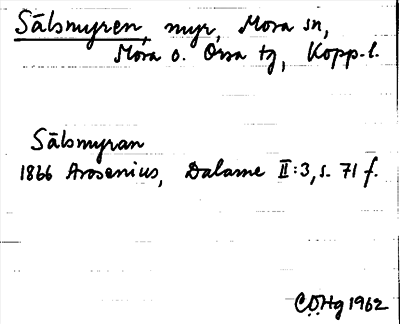 Sälsmyren, myr, Mora sn,
Mora o. Orsa tg, Kopp. l.
Sälsmyran
1866 Arosenius, Dalarne II:3, s. 71 f.
C.O.Hg 1962